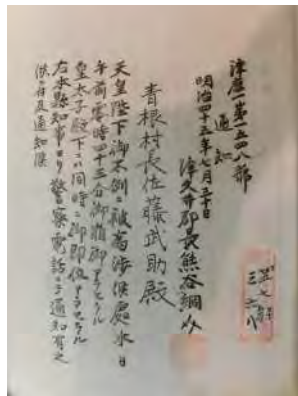 津庶一第一五四八號
通知
明治四十五年七月三十日
津久井郡長熊谷綱次
青根村長佐藤武助殿
天皇陛下御不例ニ被為渉候處本日
午前零時四十三分御崩御アラセラレ
皇太子殿下ニハ同時ニ御即位アラセラル
右本縣知事ヨリ警察電話ニテ通知有之
候ニ付此段及通知候